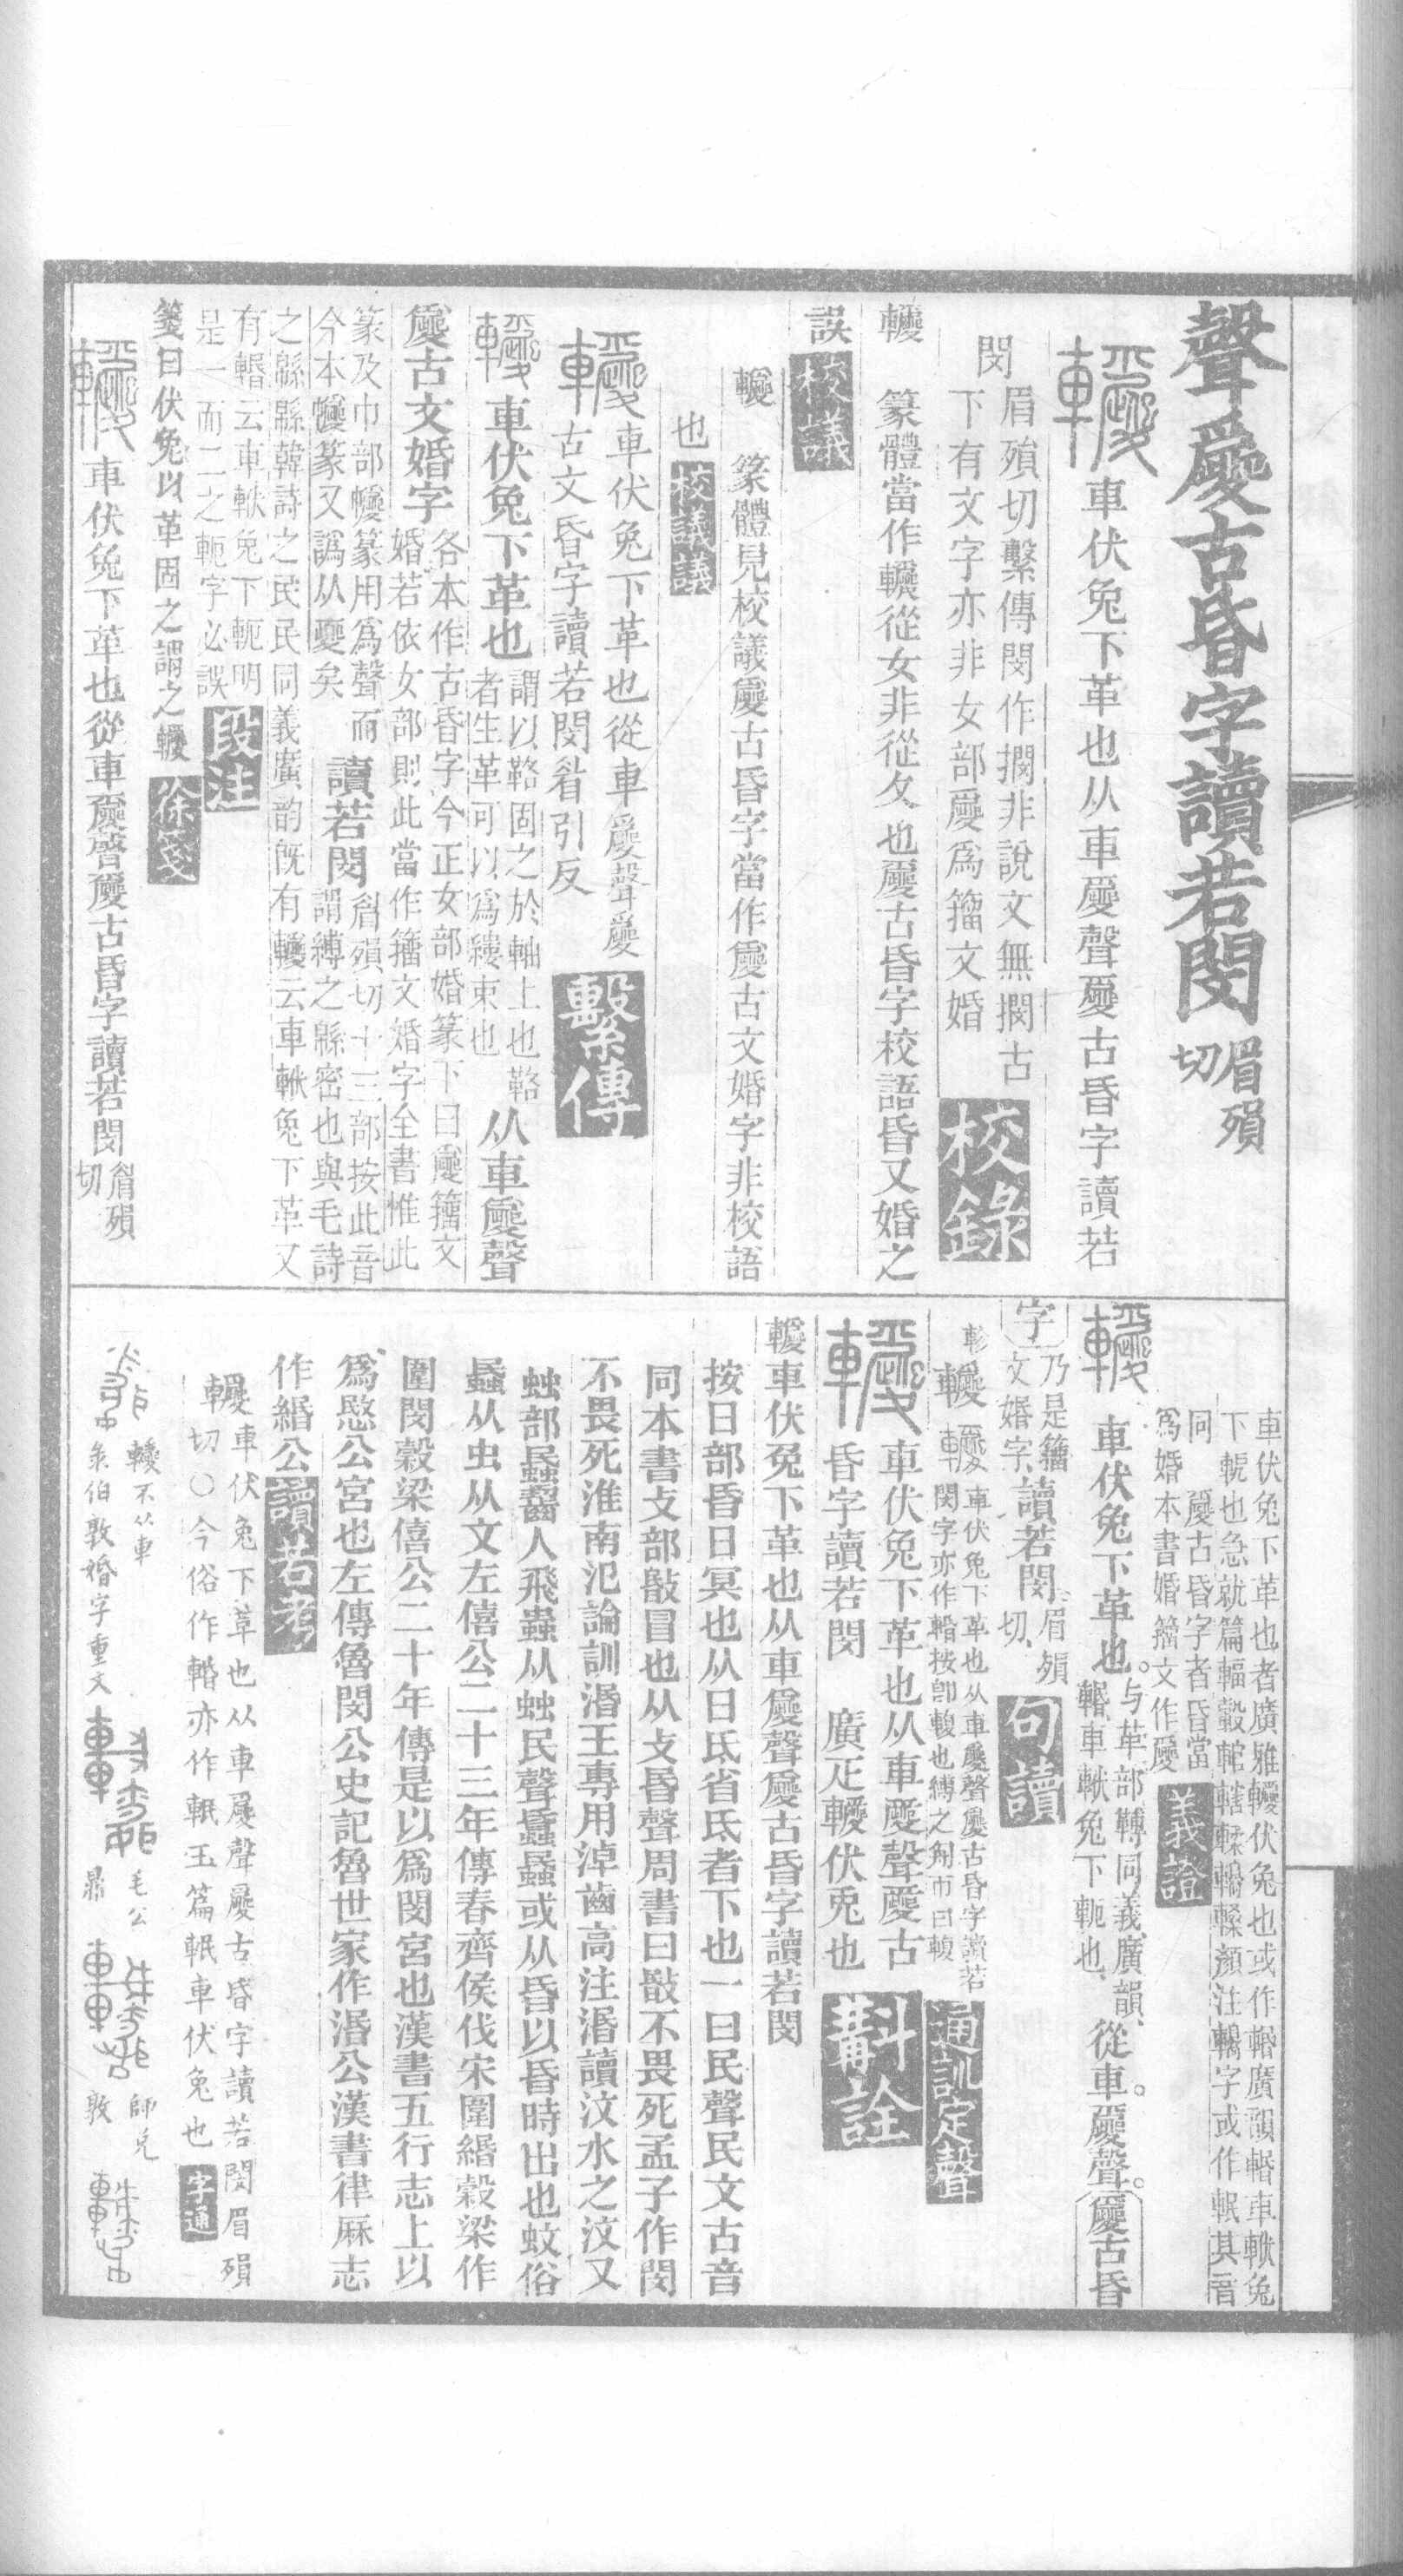 聲㛰古昏字讀若閔眉殞切
車伏兔下革也从車㛰聲㛰古昏字讀若
閔眉殞切繫傳閔作撋非說文無撋古
下有文字亦非女部㛰爲籀文婚校錄
篆體當作從女非從夂也㛰古昏字校語昏又婚之
誤校議
篆體見校議㛰古昏字當作㛰古文婚字非校語
也校議議
車伏兔下革也從車㛰聲㛰
古文昏字讀若閔眉引反繫傳
車伏兔下革也謂以鞈固之於軸上也鞈
者生革可以爲縷束也从車㛰聲
㛰古文婚字各本作古昏字今正女部婚篆下曰㛰籀文
婚若依女部則此當作籀文婚字全書惟此
篆及巾部篆用爲聲而讀若閔眉殞切十三部按此音
今本篆又譌从夒矣謂縛之緜密也與毛詩
之緜緜韓詩之民民同義廣韵旣有云車軑兔下革又
有輽云車軑兔下軛明
是一而二之軛字必誤段注
箋曰伏兔以革固之謂之徐箋
車伏兔下革也從車㛰聲㛰古昏字讀若閔眉殞切
車伏兔下革也者廣雅伏兔也或作輽廣韻輽車軑兔
下軛也急就篇輻轂顏注字或作其音
同㛰古昏字者昏當
爲婚本書婚籀文作㛰義證
車伏兔下革也。与革部同義廣韻、
輽、車軑兔下軛也、從車。㛰聲。㛰古昏
字乃是籀文婚字、讀若閔。眉殞切、句讀
車伏兔下革也从車㛰聲㛰古昏字讀若
閔字亦作輽按卽也縛之通訓定聲
車伏兔下革也从車㛰聲㛰古
昏字讀若閔 廣疋伏兎也斠詮
車伏兔下革也从車㛰聲㛰古昏字讀若閔
按日部昏日冥也从日氐省氐者下也一曰民聲民文古音
同本書攴部敃冒也从攴昏聲周書曰敃不畏死孟子作閔
不畏死淮南氾論訓湣王專用淖齒高注湣讀汶水之汶又
䖵部䘇齧人飛蟲从䖵民聲䘇或从昏以昏時出也蚊俗
䘇从虫从文左僖公二十三年傳春齊侯伐宋圍緡穀梁作
圍閔穀梁僖公二十年傳是以爲閔宮也漢書五行志上以
爲愍公宮也左傳魯閔公史記魯世家作湣公漢書律厤志
作緡公讀若考
車伏兔下革也从車㛰聲㛰古昏字讀若閔眉殞
切○今俗作輽亦作䡑玉篇䡑車伏兔也字通
不从車
𠂔伯敦婚字重文
毛公鼎
師兌敦